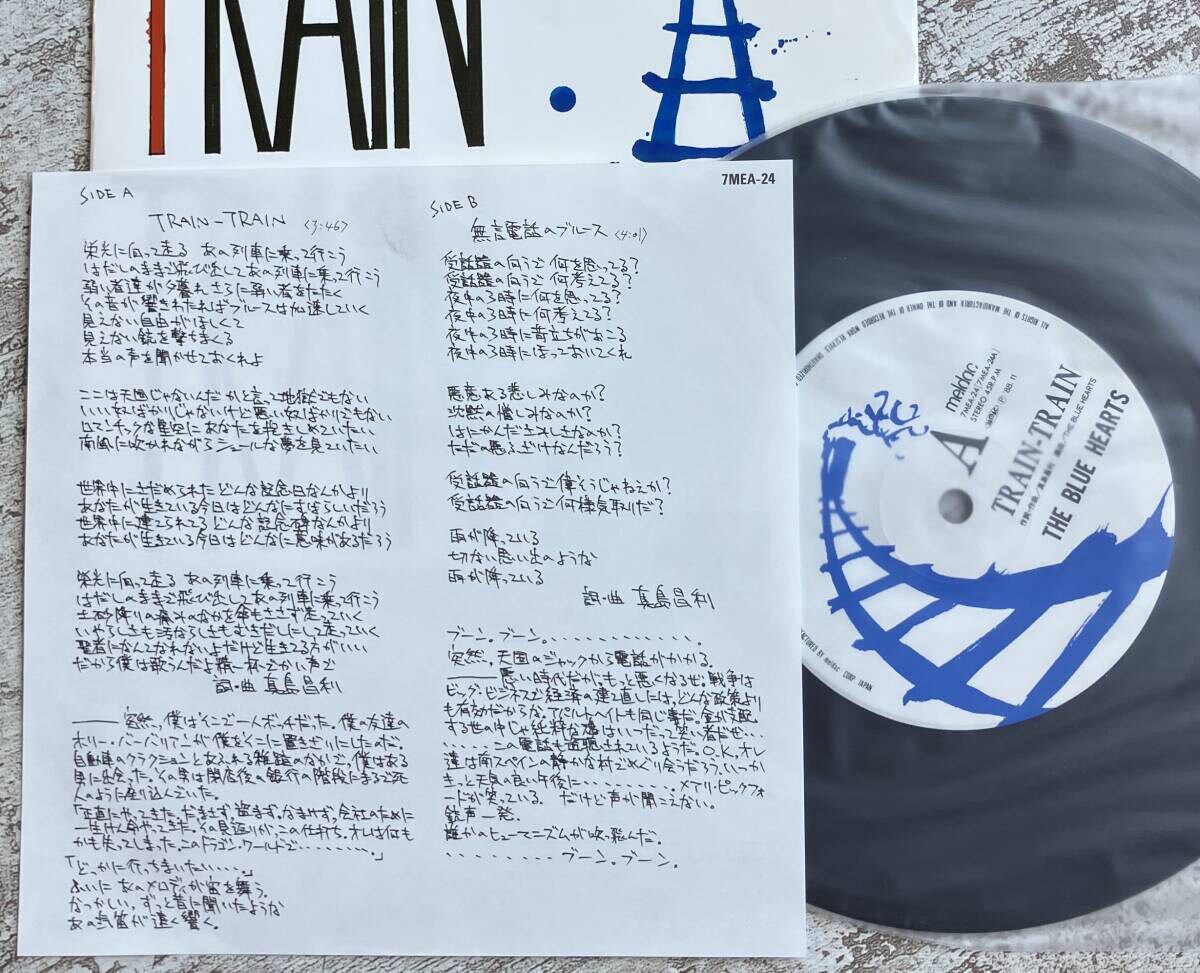 TRAIN
7MEA-24
SIDE A
TRAIN-TRAIN <3:46>
栄光に向って走る あの列車に乗って行こう
はだしのままで飛び出してあの列車に乗って行こう
弱い者達が夕暮れ さらに弱い者をたたく
その音が響きわたればブルースは加速していく
見えない自由がほしくて
見えない銃を撃ちまくる
本当の声を聞かせておくれよ
ここは天国じゃないんだ かと言って地獄でもない
いい奴ばかりじゃないけど悪い奴ばかりでもない
ロマンチックな星空に あなたを抱きしめていたい
南風に吹かれながら シュールな夢を見ていたい
世界中にさだめられた どんな記念日なんかより
あなたが生きている今日はどんなにすばらしいだろう
世界中に建てられてる どんな記念碑なんかより
あなたが生きている今日はどんなに意味があるだろう
栄光に向って走る あの列車に乗って行こう
はだしのままで飛び出して あの列車に乗って行こう
土砂降りの痛みのなかを傘もささず走っていく
いやらしさも汚ならしさもむきだしにして走っていく
聖者になんてなれないよだけど生きてる方がいい
だから僕は歌うんだよ精一杯でかい声で
詞・曲 真島昌利
――突然、僕はそこで一人ボッチだった。僕の友達の
ホリー・バーバリアンが僕をそこに置きざりにしたのだ。
自動車のクラクションとあふれる雑踏のなかで、僕はある
男に出会った。その男は閉店後の銀行の階段にまるで死
人のように座り込んでいた。
「正直にやってきた。だまさず、盗まず、なまけず、会社のために
一生けん命やってきた。その見返りが、この仕打ち。オレは何も
かも失ってしまった。このドラゴン・ワールドで・・・・・・・・。」
「どっかに行っちまいたい・・・・・」
ふいに あのメロディが宙を舞う。
なつかしい、ずっと昔に聞いたような
あの汽笛が遠く響く。
SIDE B
無言電話のブルース <4:01>
受話器の向うで 何を思ってる?
受話器の向うで 何考えてる?
夜中の3時に何を思ってる?
夜中の3時に何考えてる?
夜中の3時に苛立ちがおこる
夜中の3時にほっておいてくれ
悪意ある悲しみなのか?
沈黙の憎しみなのか?
はにかんださみしさなのか?
ただの悪ふざけなんだろう?
受話器の向うで偉そうじゃねえか?
受話器の向うで何様気取りだ?
雨が降っている
切ない思い出のような
雨が降っている
詞・曲 真島昌利
ブーン。ブーン。・・・・・・・・・・・・・
突然。天国のジャックから電話がかかる。
――悪い時代だが、もっと悪くなるぜ。戦争は
ビッグ・ビジネスで経済の建て直しには、どんな政策より
も有効だからな。アパルトヘイトも同じ事だ。金が支配
する世の中じゃ純粋な魂はいつだって笑い者だぜ・・・
・・・・・この電話も盗聴されているようだ。O.K. オレ
達は南スペインの静かな村でめぐり会うだろう、いつか
きっと天気の良い午後に・・・・・・・・。メアリ・ピックフォ
ードが笑っている。 だけど声が聞こえない。
銃声一発。
誰かのヒューマニズムが吹っ飛んだ。
・・・・・・・・ブーン。ブーン。
ALL RIGHTS OF THE MANUFACTURER AND OF THE OWNER OF THE RECORDED WORK RESERVED
meldac.
7MEA-24 (7MEA-24A)
STEREO 45R.P.M.
Ⓟ '88.11
A
TRAIN-TRAIN
作詞・作曲/真島昌利 編曲/THE BLUE HEARTS
THE BLUE HEARTS
MANUFACTURED BY meldac CORP. JAPAN